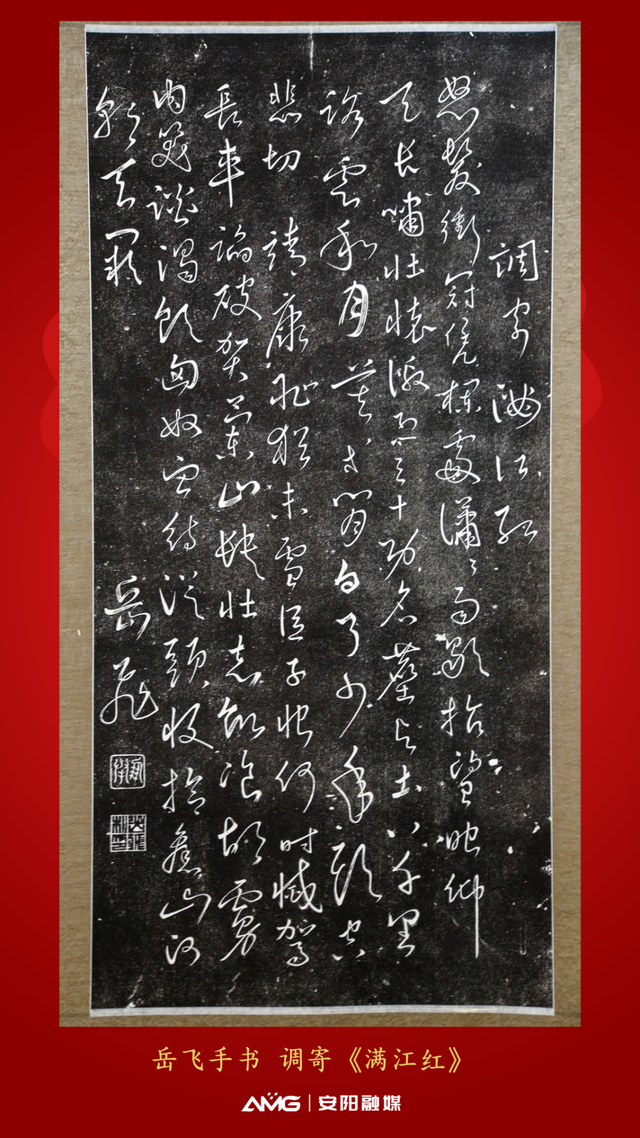 調寄滿江紅
怒髮衝冠凭欄處瀟〻雨歇抬望眼仰
天長嘯壯懷激烈三十功名塵与土八千里
路雲和月莫等閒白了少年頭空
悲切 靖康恥猶未雪臣子恨何時滅駕
長車踏破賀蘭山缺壯志飢飡胡虜
肉笑談渴飲匈奴血待從頭收拾舊山河
朝天闕 岳飛
岳飞手书 调寄《满江红》
AMG | 安阳融媒